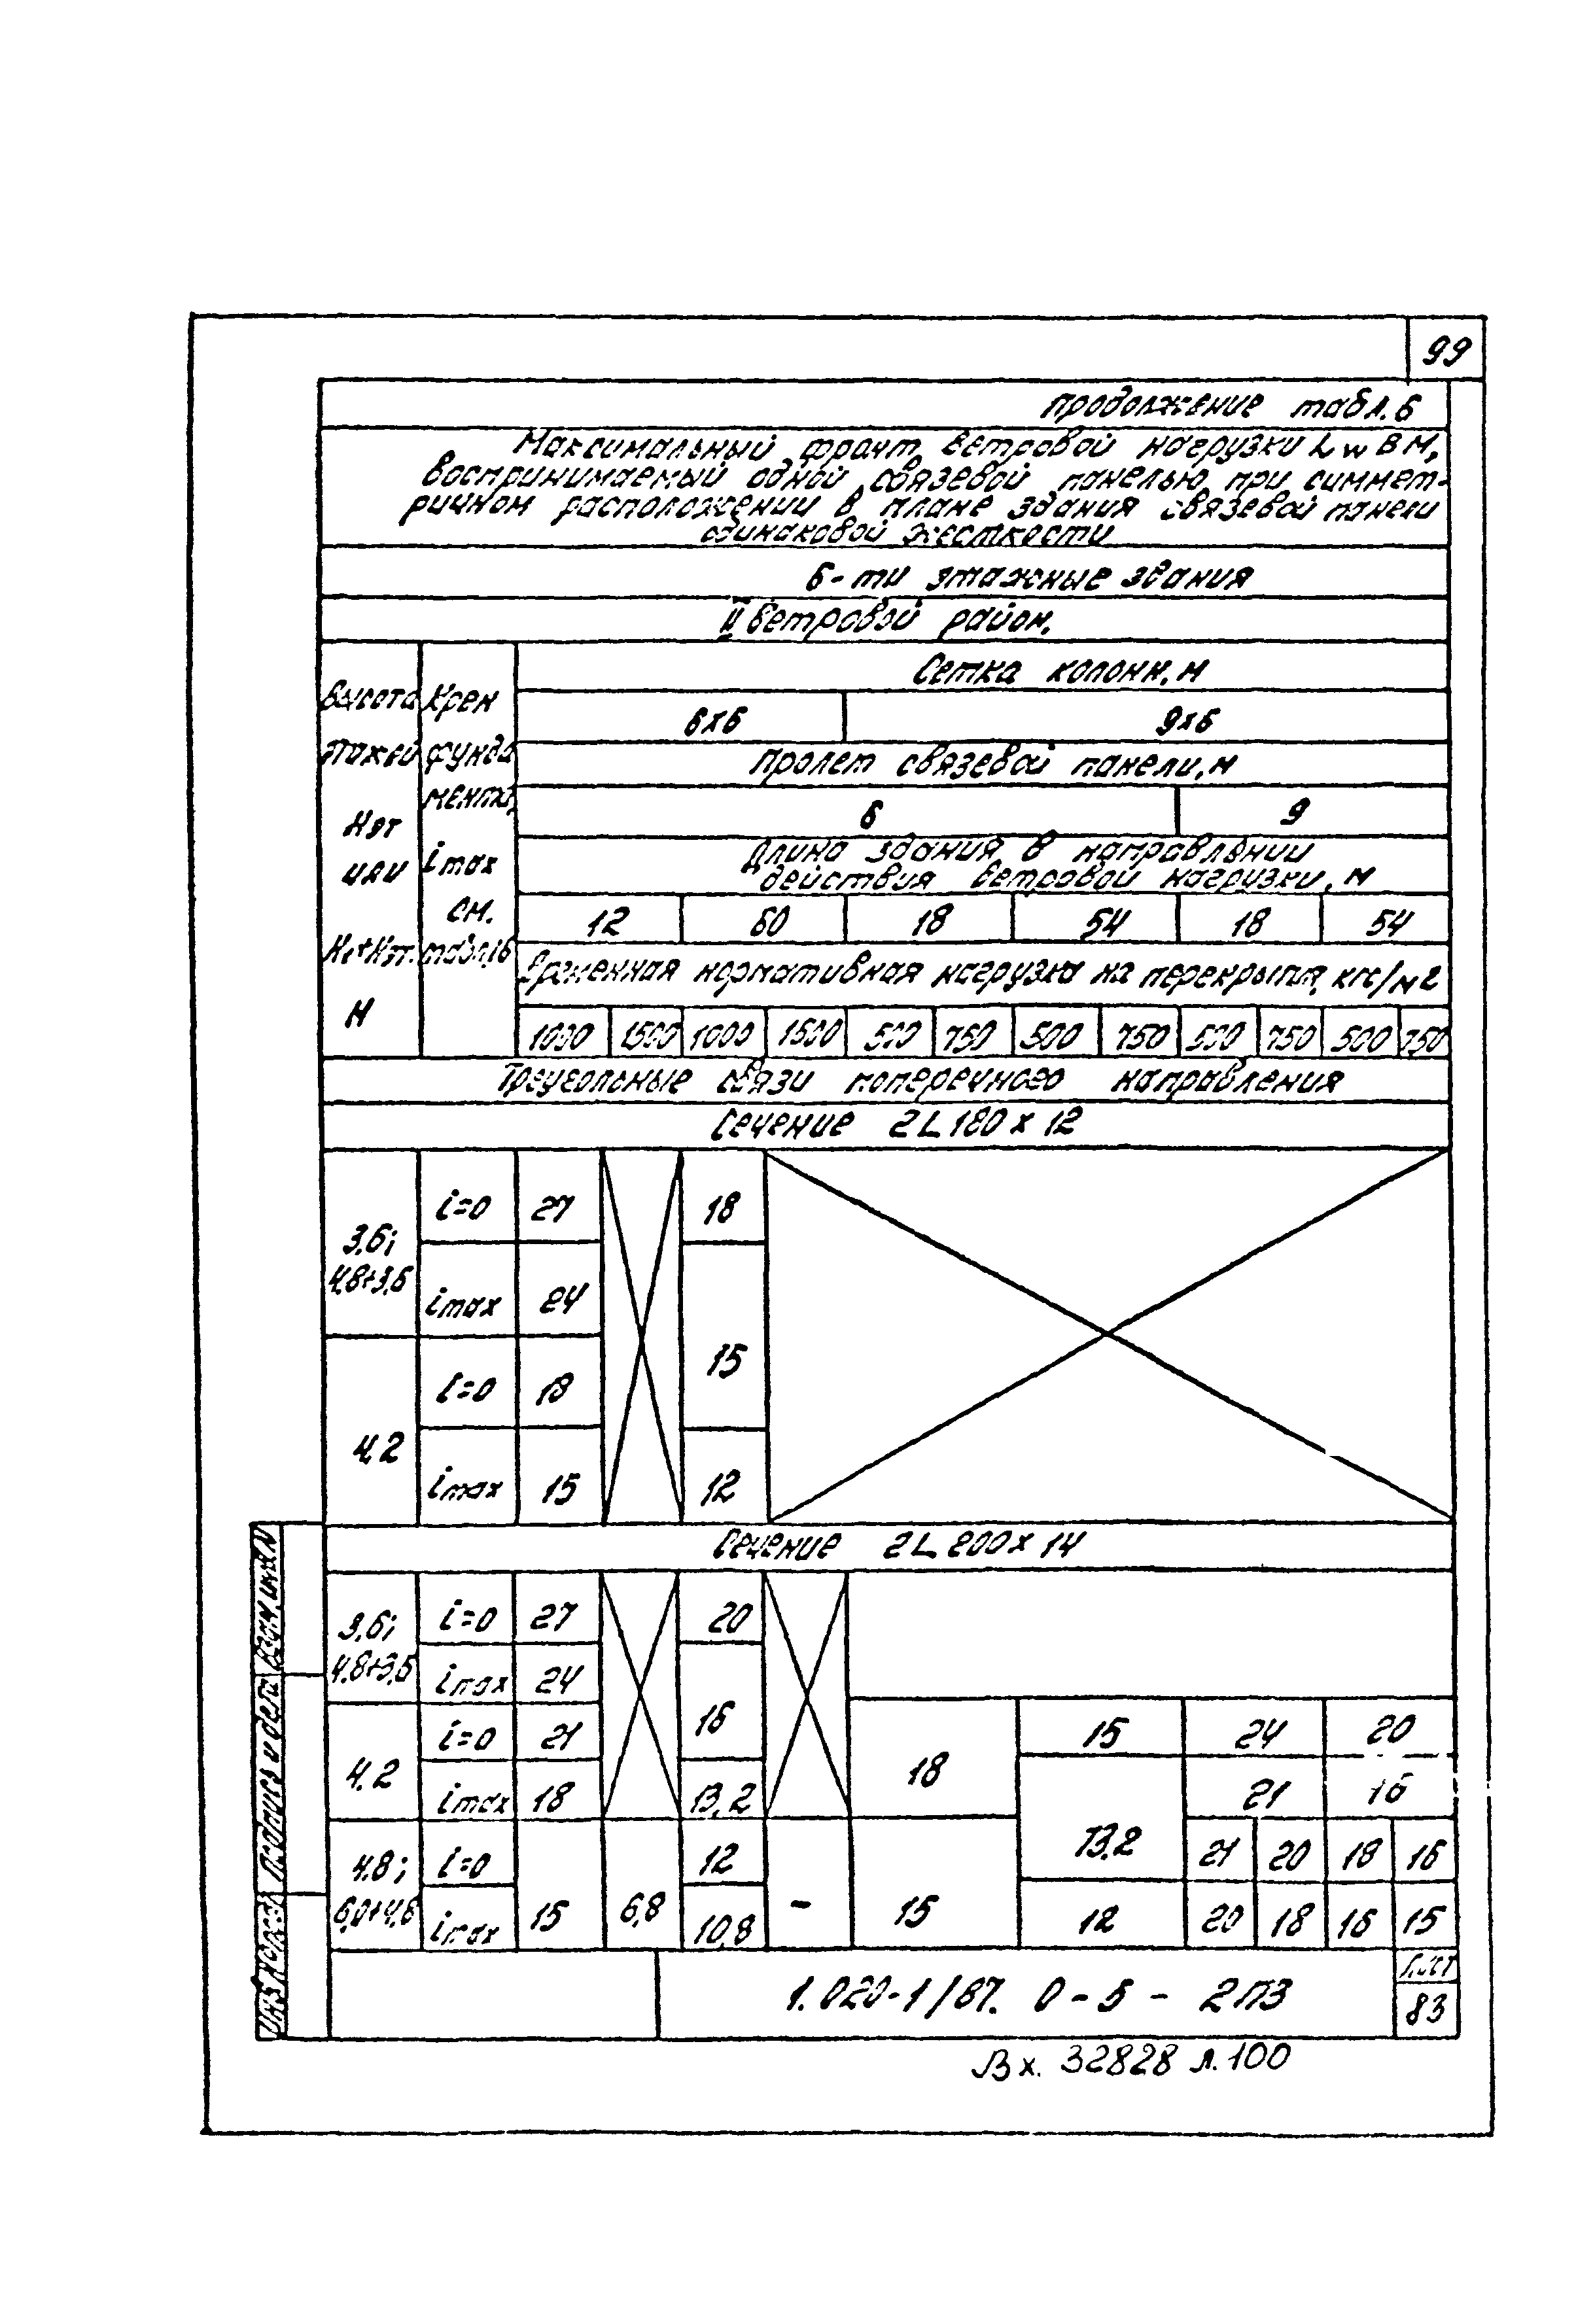 99
Продолжение табл. 6
Максимальный фронт ветровой нагрузки Lw в м,
воспринимаемый одной связевой панелью, при симмет-
ричном расположении в плане здания связевой панели
одинаковой жесткости
6-ти этажные здания
II ветровой район.
Высота этажей Нэт или Н1+Нэт. м
Крен фунда мента, imax см. табл. 16
Сетка колонн, м
6х6 9х6
Пролет связевой панели, м
6 9
Длина здания в направлении
действия ветровой нагрузки, м
12 60 18 54 18 54
Временная нормативная нагрузка на перекрытия, кгс/м2
1000 1500 1000 1500 500 750 500 750 500 750 500 750
Треугольные связи поперечного направления
Сечение 2L 180 х 12
3.6; 4.8+3.6 i=0 27 18
imax 24 15
4.2 i=0 18
imax 15 12
Сечение 2L 200 х 14
3.6; 4.8+3.6 i=0 27 20
imax 24 16
4.2 i=0 21 18 15 24 20
imax 18 13,2 13.2 21 16
4.8; 6,0+4,8 i=0 15 6,8 12 - 15 21 20 18 16
imax 10,8 12 20 18 16 15
1.020-1/87. 0-5 - 2ПЗ
Лист
83
Вх. 32828 л. 100
Подпись и дата
Взам. инв. N